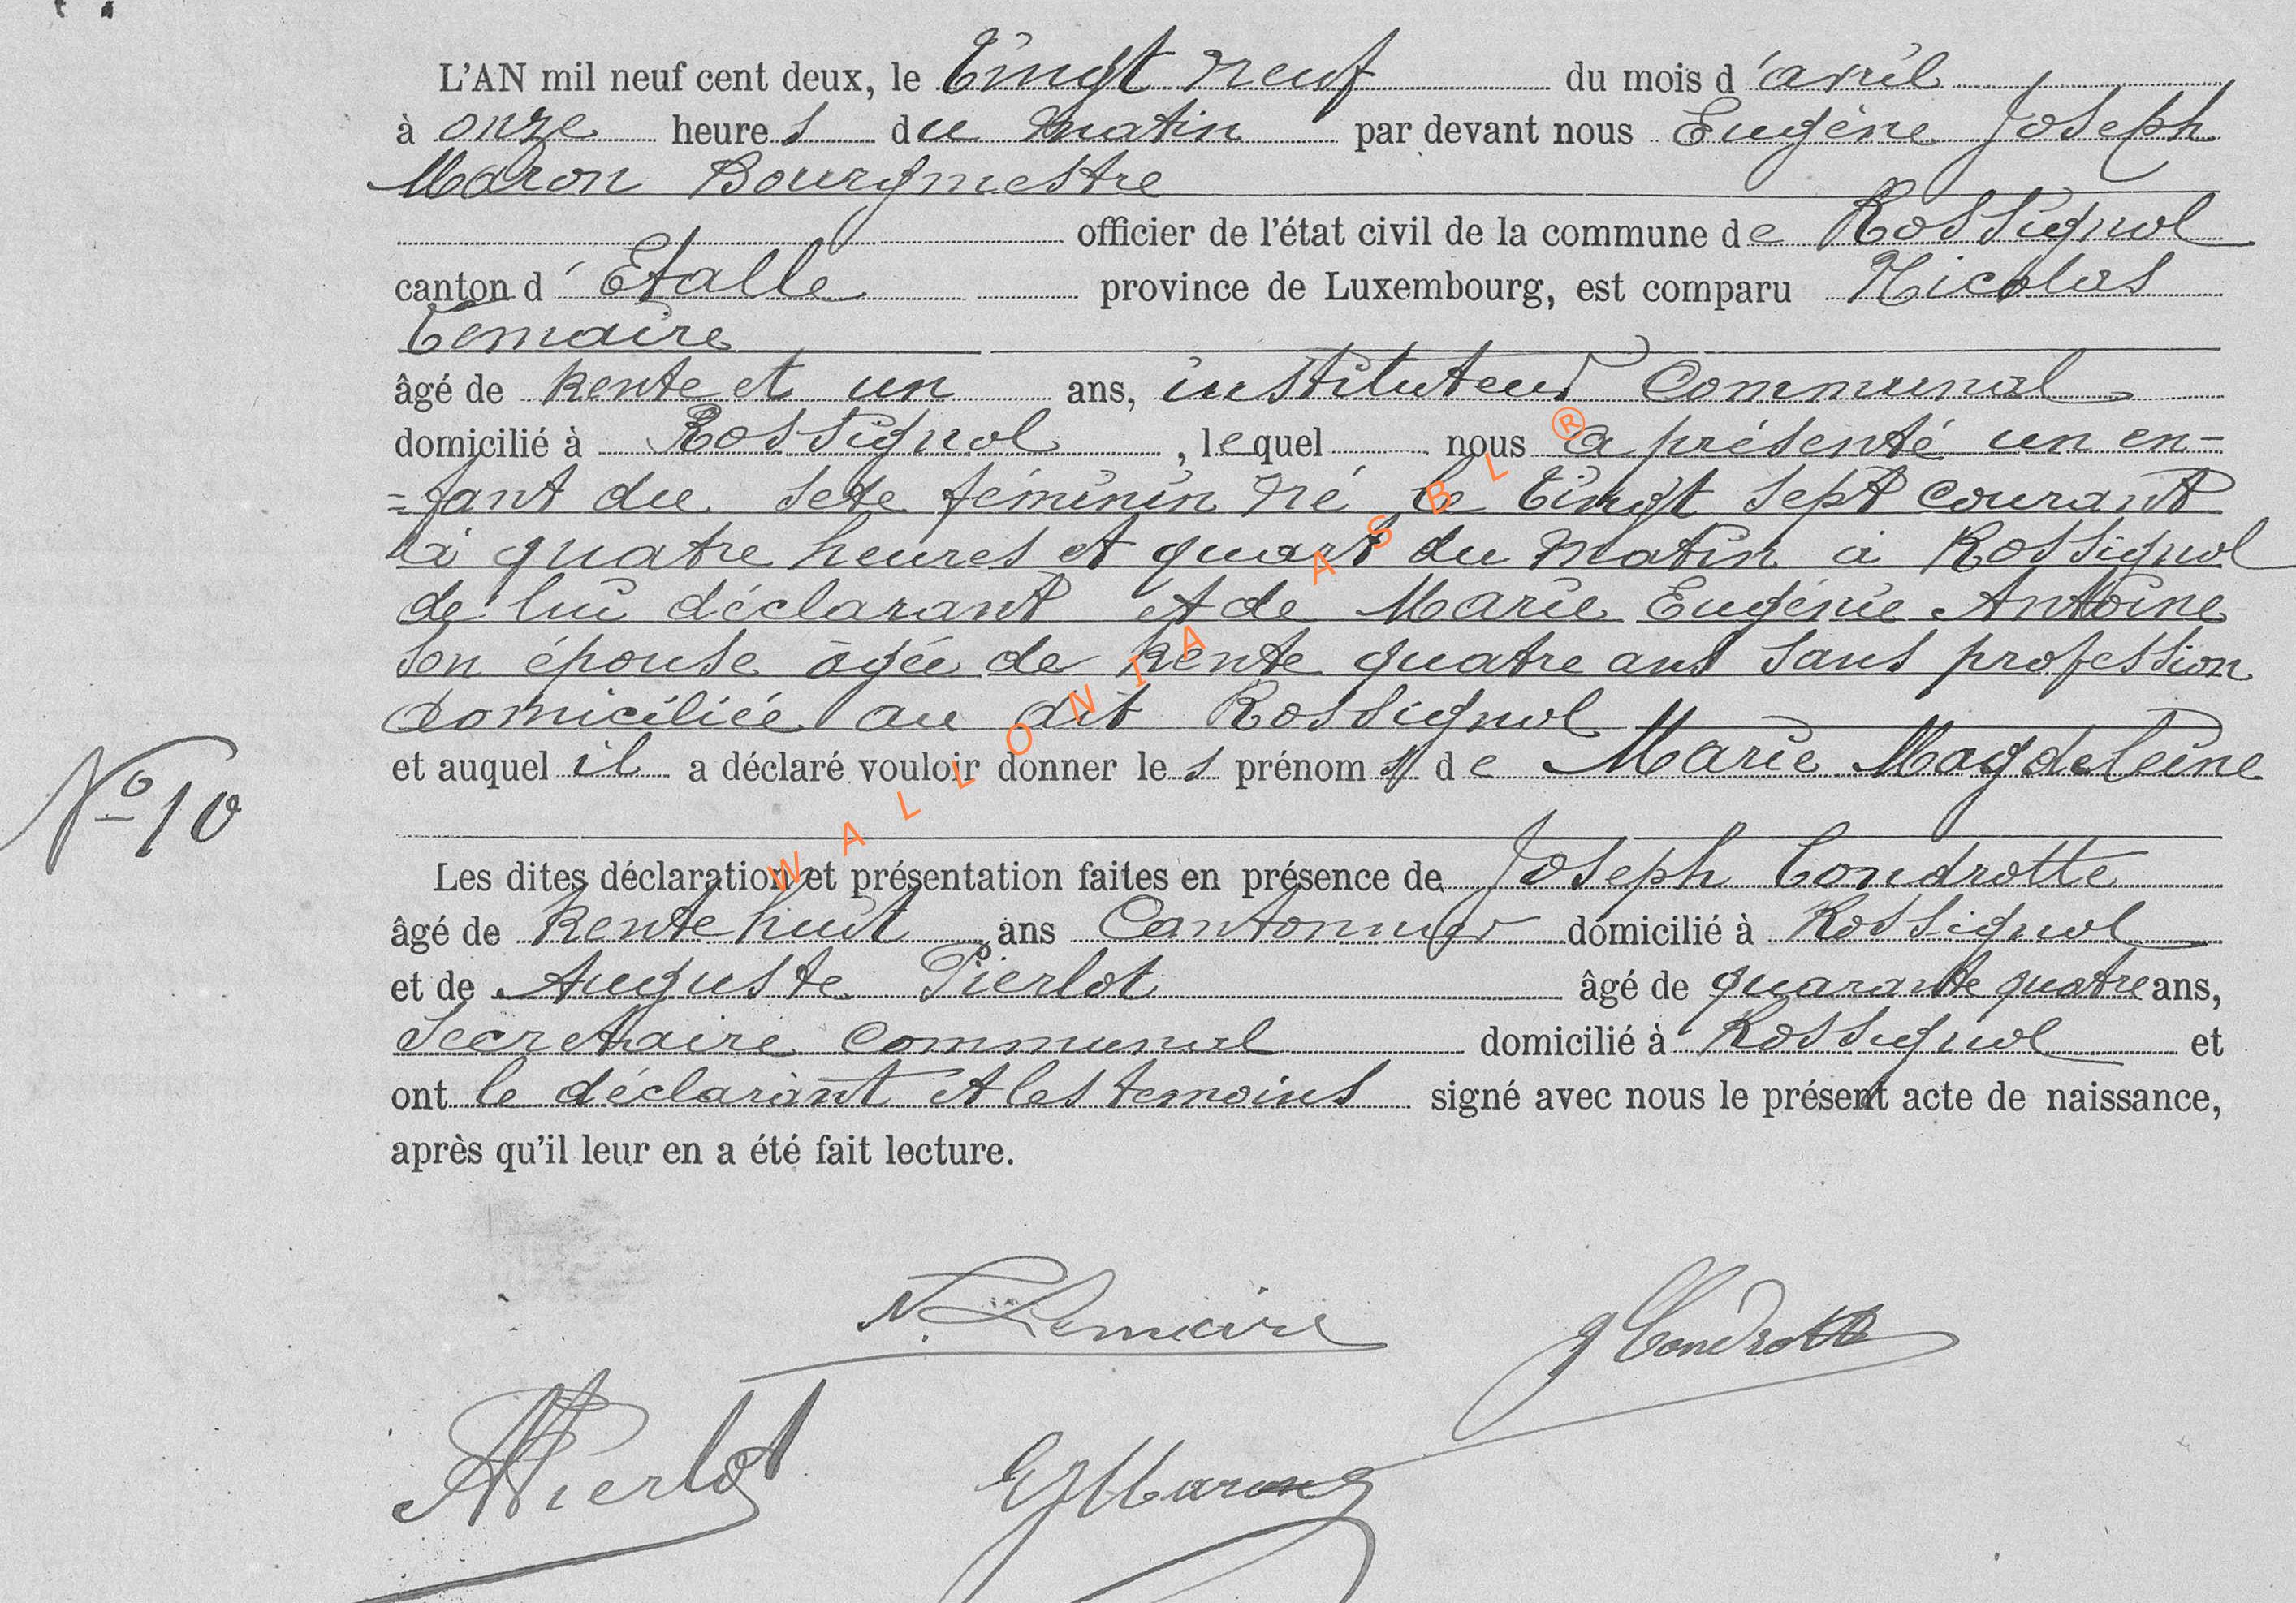 L'AN mil neuf cent deux, le Vingt neuf du mois d'avril
à onze heures du matin par devant nous Eugène Joseph
Maron Bourgmestre
officier de l'état civil de la commune de Rossignol
canton d'Etalle province de Luxembourg, est comparu Nicolas
Lemaire
âgé de trente et un ans, instituteur Communal
domicilié à Rossignol, lequel nous a présenté un en=
=fant du sexe féminin né le Vingt sept courant
à quatre heures et quart du matin à Rossignol
de lui déclarant et de Marie Eugénie Antoine
son épouse âgée de trente quatre ans sans profession
domiciliée au dit Rossignol
et auquel il a déclaré vouloir donner les prénoms de Marie Magdeleine
N° 10
Les dites déclaration et présentation faites en présence de Joseph Condrotte
âgé de trente huit ans Cantonnier domicilié à Rossignol
et de Auguste Pierlot âgé de quarante quatre ans,
Secretaire communal domicilié à Rossignol et
ont le déclarant et les temoins signé avec nous le présent acte de naissance,
après qu'il leur en a été fait lecture.
N. Lemaire
J Condrotte
A Pierlot
EJ Maron
WALLONIA ASBL ®